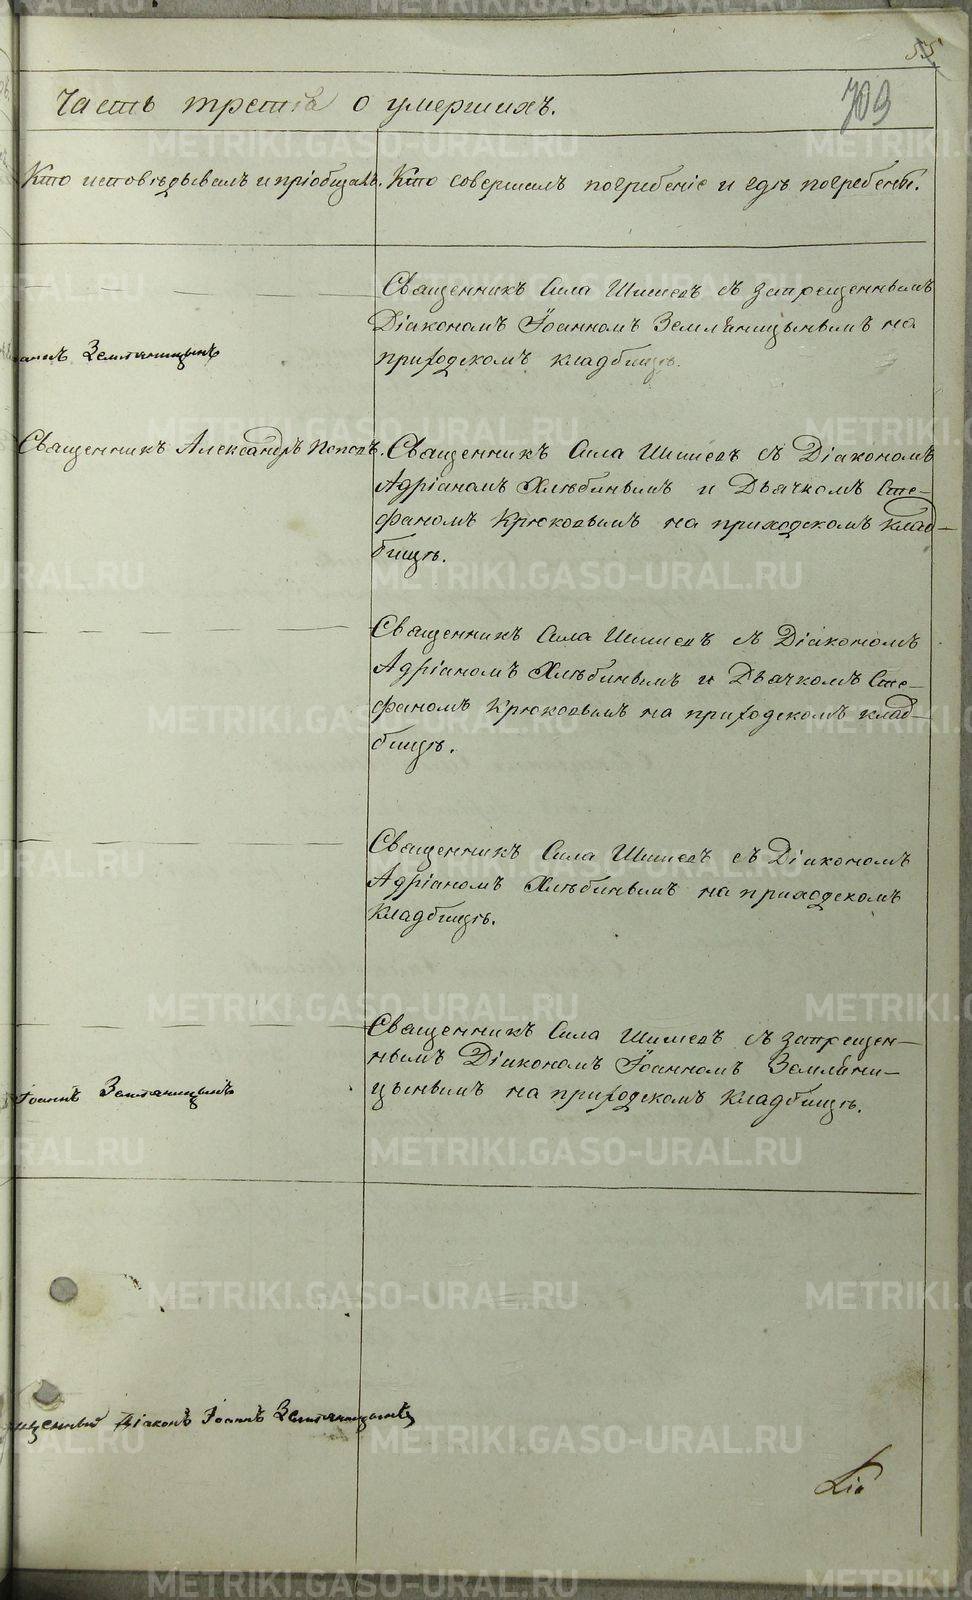 55
709
Часть третія о умершихъ.
Кто исповѣдывалъ и пріобщалъ.
Кто совершалъ погребеніе и гдѣ погребены.
Священникъ Сила Шишевъ съ запрещеннымъ
Діакономъ Іоанномъ Земляницынымъ на
приходскомъ кладбищѣ.
Земляницынъ
Священникъ Александръ Поповъ.
Священникъ Сила Шишевъ съ Діакономъ
Адріаномъ Хлѣбинымъ и Дьячкомъ Сте-
фаномъ Крюковымъ на приходскомъ клад-
бищѣ.
Священникъ Сила Шишевъ съ Діакономъ
Адріаномъ Хлѣбинымъ и Дьячкомъ Сте-
фаномъ Крюковымъ на приходскомъ клад-
бищѣ.
Священникъ Сила Шишевъ съ Діакономъ
Адріаномъ Хлѣбинымъ на приходскомъ
кладбищѣ.
Священникъ Сила Шишевъ съ запрещен-
нымъ Діакономъ Іоанномъ Земляни-
цынымъ на приходскомъ кладбищѣ.
Іоаннъ Земляницынъ
щенный Діаконъ Іоаннъ Земляницынъ
Діа
METRIKI.GASO-URAL.RU